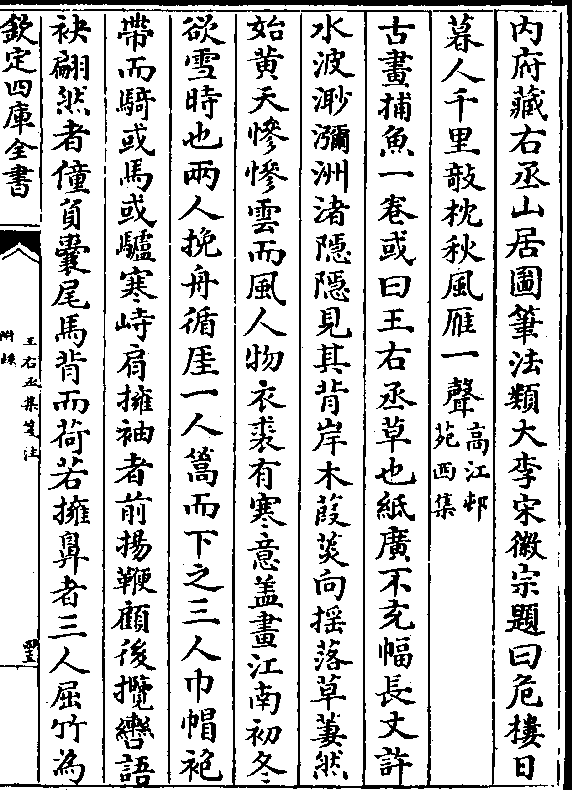 内府藏右丞山居圖筆法類大李宋徽宗題曰危樓日
暮人千里敧枕秋風雁一聲高江邨苑西集
古畫捕魚一卷或曰王右丞草也紙廣不充幅長丈許
水波渺瀰洲渚隱隱見其背岸木葭菼向揺落草萋然
始黄天慘慘雲而風人物衣裘有寒意盖畫江南初冬
欲雪時也兩人挽舟循厓一人篙而下之三人巾帽袍
帶而騎或馬或驢寒峙肩擁袖者前揚鞭顧後攬轡語
袂翩然者僮負囊尾馬背而荷若擁鼻者三人屈竹為
欽定四庫全書
王右丞集箋注
附錄